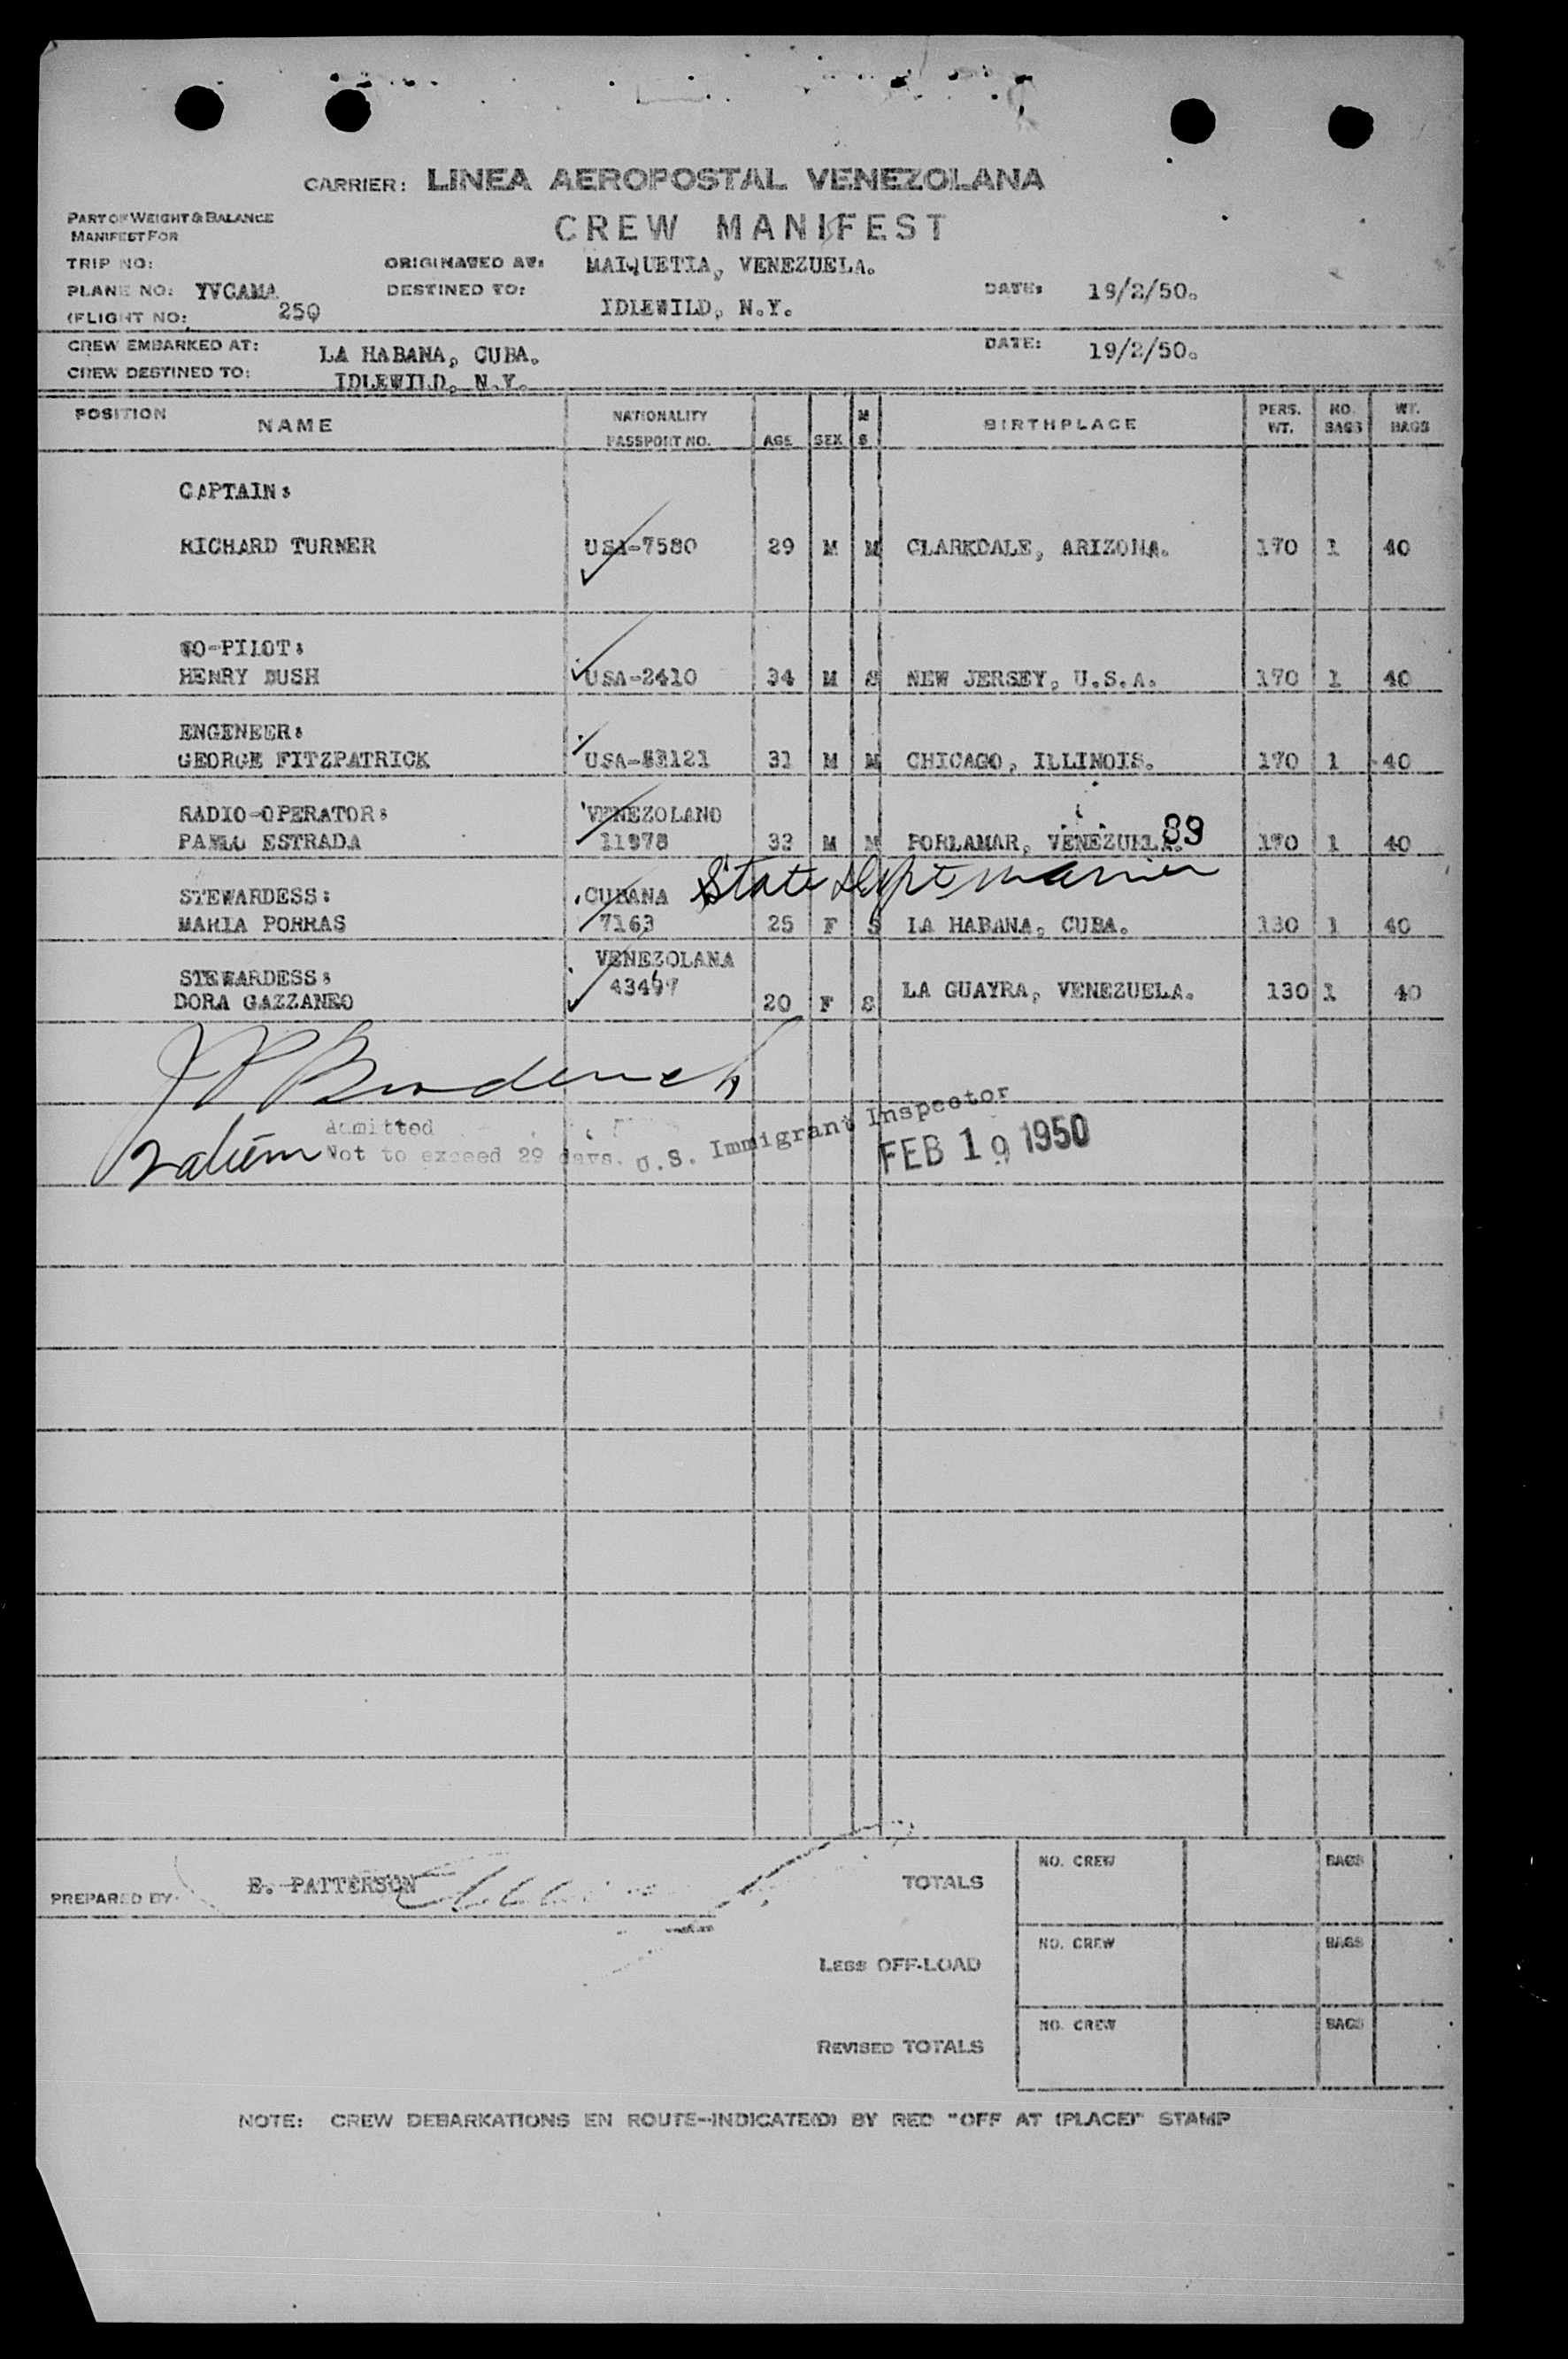 CARRIER: LINEA AEROPOSTAL VENEZOLANA
PART OF WEIGHT & BALANCE
MANIFEST FOR
CREW MANIFEST
TRIP NO: ORIGINATED AT: MAIQUETIA, VENEZUELA.
PLANE NO: YVCAMA DESTINED TO: IDLEWILD, N.Y. DATE: 19/2/50.
(FLIGHT NO: 250
CREW EMBARKED AT: LA HABANA, CUBA. DATE: 19/2/50.
CREW DESTINED TO: IDLEWILD, N.Y.
POSITION NAME NATIONALITY PASSPORT NO. AGE SEX M S BIRTHPLACE PERS. WT. NO. BAGS WT. BAGS
CAPTAIN:
RICHARD TURNER USA-7580 29 M M CLARKDALE, ARIZONA. 170 1 40
CO-PILOT:
HENRY BUSH USA-2410 34 M S NEW JERSEY, U.S.A. 170 1 40
ENGENEER:
GEORGE FITZPATRICK 31 M M CHICAGO, ILLINOIS. 170 1 40
RADIO-OPERATOR: VENEZOLANO
PABLO ESTRADA 11978 33 M M PORLAMAR, VENEZUELA. 170 1 40
89
State Dept
STEWARDESS: CUBANA
MARIA PORRAS 7163 25 F S LA HABANA, CUBA. 130 1 40
STEWARDESS: VENEZOLANA
DORA GAZZANEO 20 F S LA GUAYRA, VENEZUELA. 130 1 40
J P Broderick
Admitted
Not to exceed 29 days. U.S. Immigrant Inspector
FEB 19 1950
PREPARED BY E. PATTERSON
TOTALS NO. CREW BAGS
LESS OFF-LOAD NO. CREW BAGS
REVISED TOTALS NO. CREW BAGS
NOTE: CREW DEBARKATIONS EN ROUTE--INDICATE(D) BY RED "OFF AT (PLACE)" STAMP